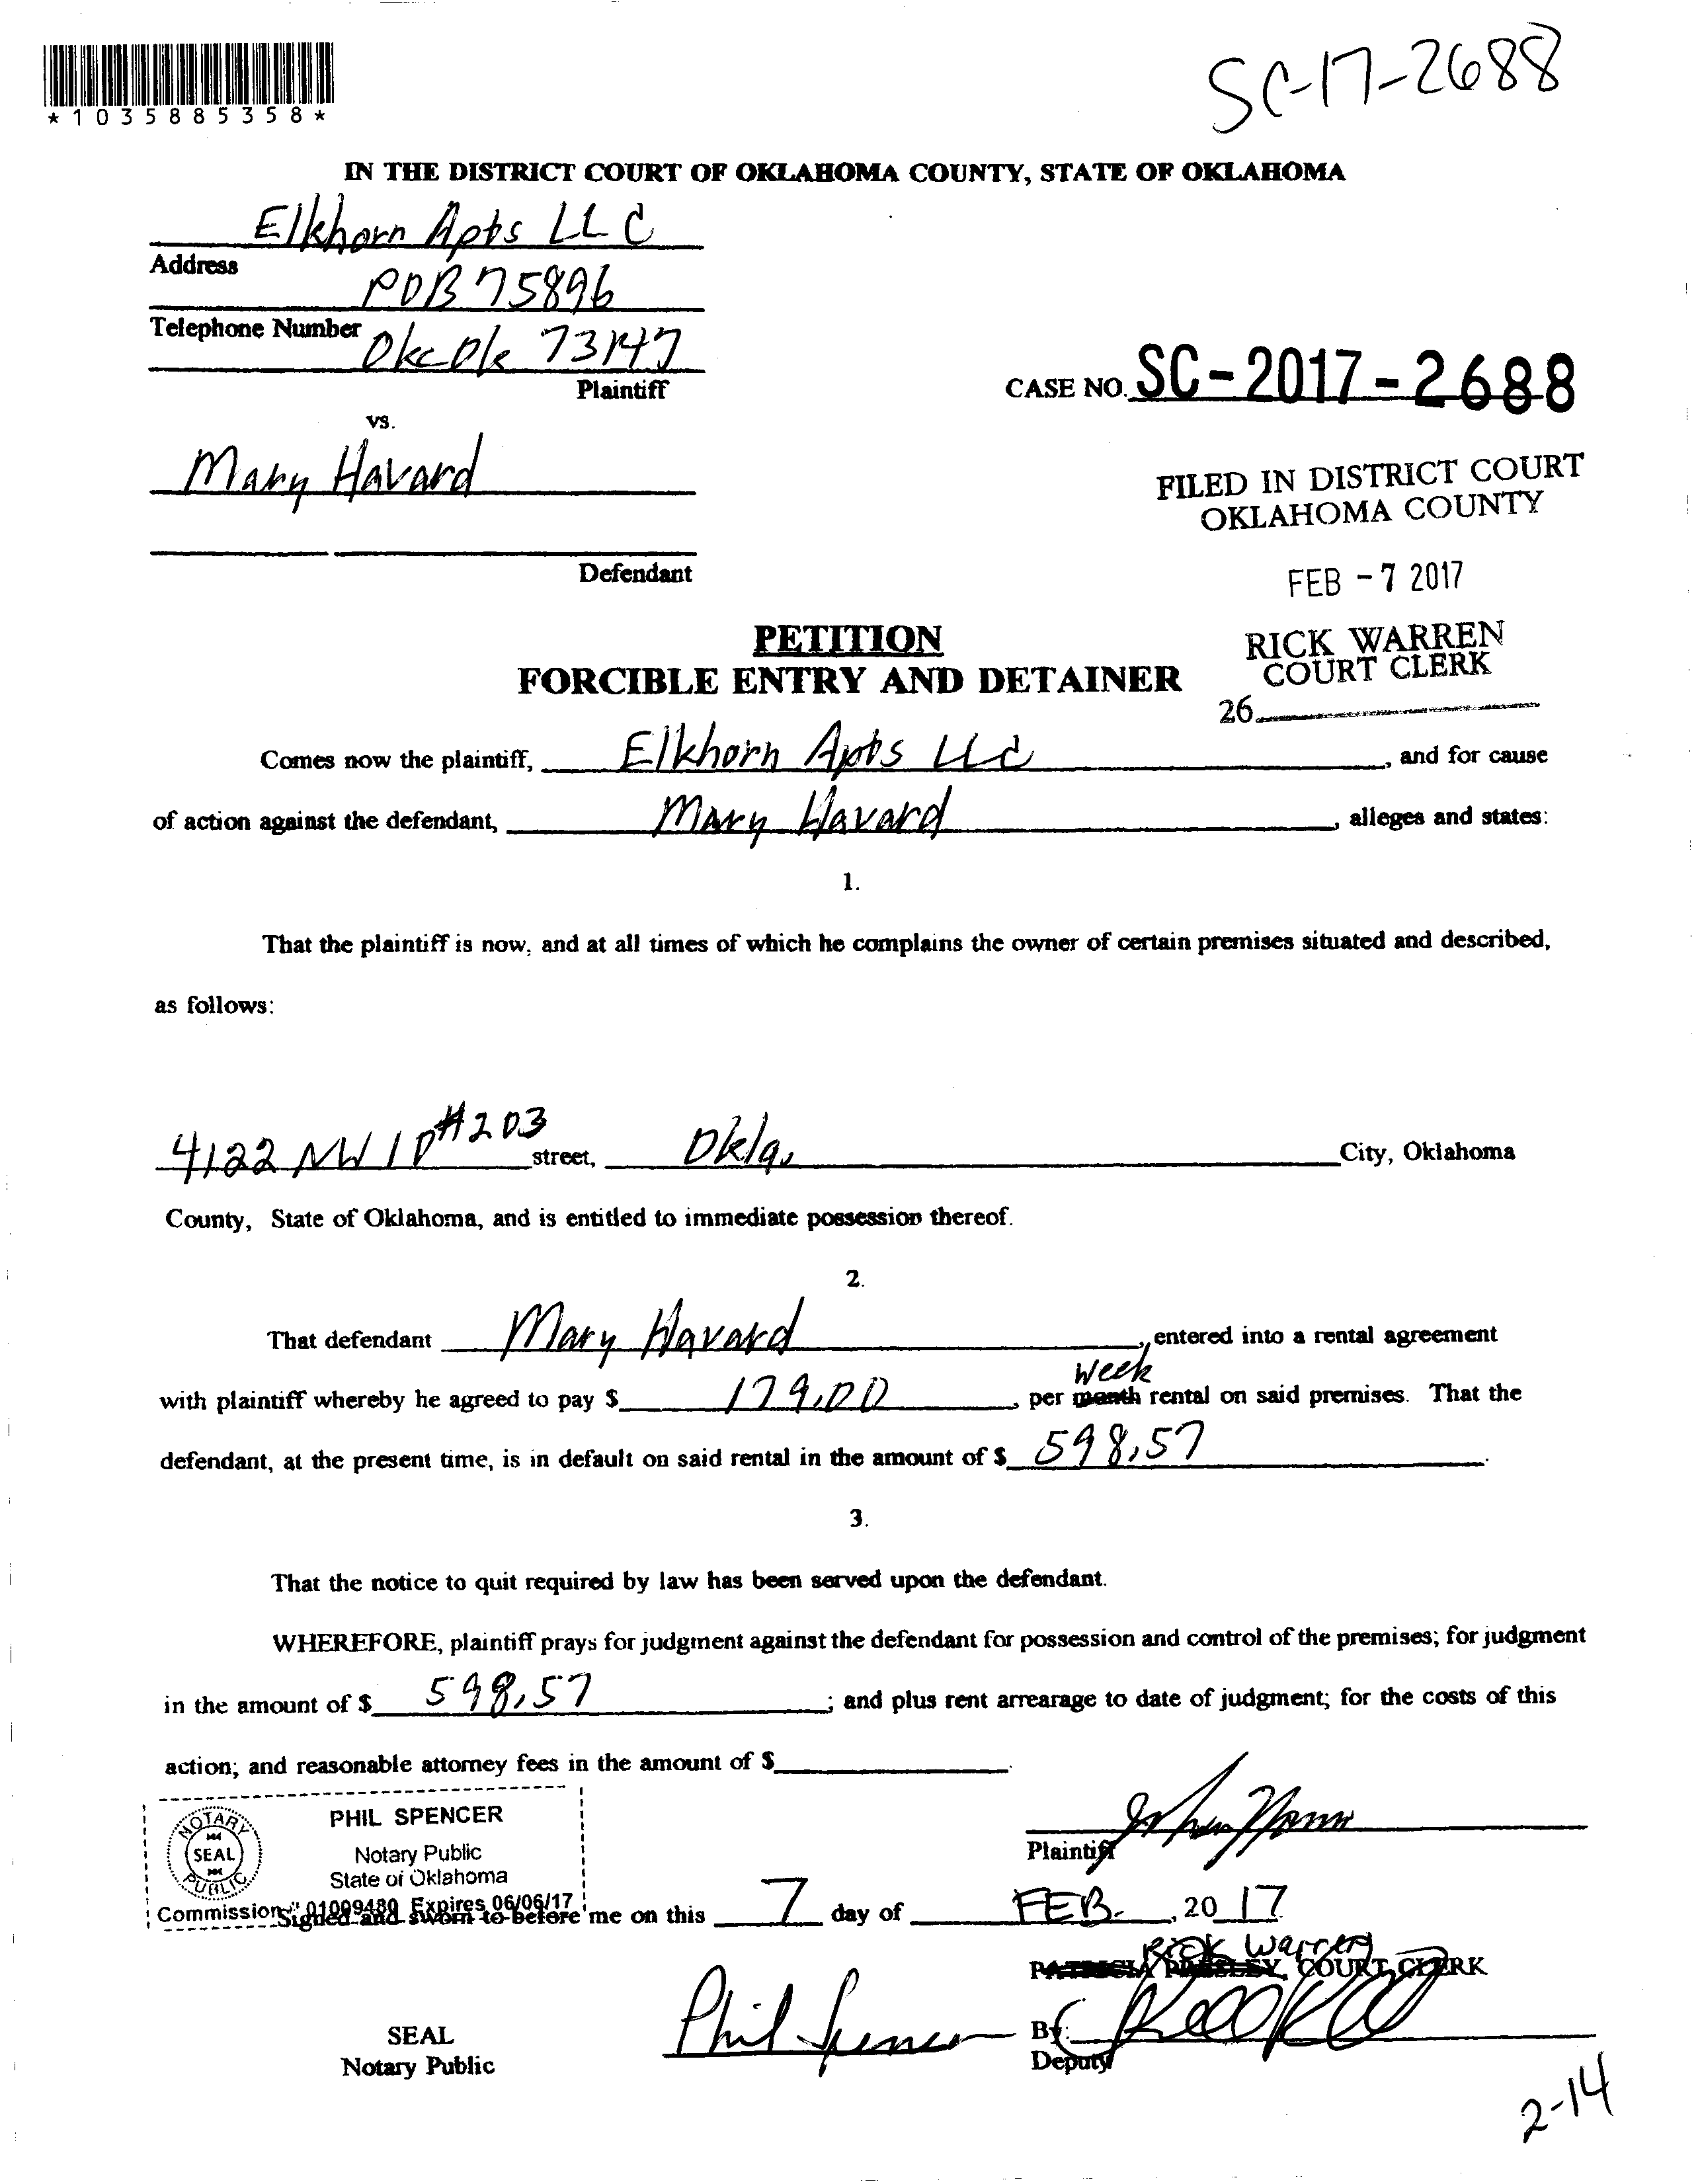 SC-17-2688
*1035885358*
IN THE DISTRICT COURT OF OKLAHOMA COUNTY, STATE OF OKLAHOMA
Elkhorn Apts LLC
Address
POB 75896
Telephone Number
Okc Ok 73147
Plaintiff
CASE NO. SC-2017-2688
vs.
Mary Havard
FILED IN DISTRICT COURT
OKLAHOMA COUNTY
Defendant
FEB -7 2017
PETITION
RICK WARREN
COURT CLERK
FORCIBLE ENTRY AND DETAINER
26
Comes now the plaintiff, Elkhorn Apts LLC, and for cause
of action against the defendant, Mary Havard, alleges and states:
1.
That the plaintiff is now, and at all times of which he complains the owner of certain premises situated and described,
as follows:
4122 NW 10 #203 street, Okla, City, Oklahoma
County, State of Oklahoma, and is entitled to immediate possession thereof.
2.
That defendant Mary Havard, entered into a rental agreement
week
with plaintiff whereby he agreed to pay $ 179.00, per month rental on said premises. That the
defendant, at the present time, is in default on said rental in the amount of $ 598.57.
3.
That the notice to quit required by law has been served upon the defendant.
WHEREFORE, plaintiff prays for judgment against the defendant for possession and control of the premises; for judgment
in the amount of $ 598.57; and plus rent arrearage to date of judgment; for the costs of this
action; and reasonable attorney fees in the amount of $ .
PHIL SPENCER
NOTARY PUBLIC
SEAL
Notary Public
State of Oklahoma
Commission # 01009480 Expires 06/06/17
Plaintiff
Signed and sworn to before me on this 7 day of FEB., 2017
Rick Warren
PATRICIA PRESLEY, COURT CLERK
Phil Spencer
By:
Deputy
SEAL
Notary Public
2-14